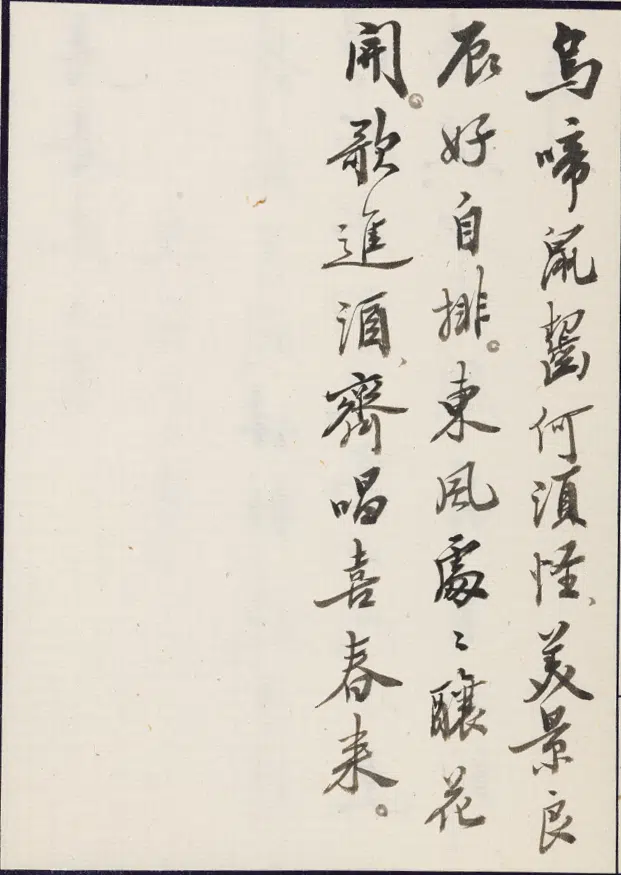 烏啼鼠齧何須怪、美景良
辰好自排。東風處〻釀花
開。歌進酒、齊唱喜春来。